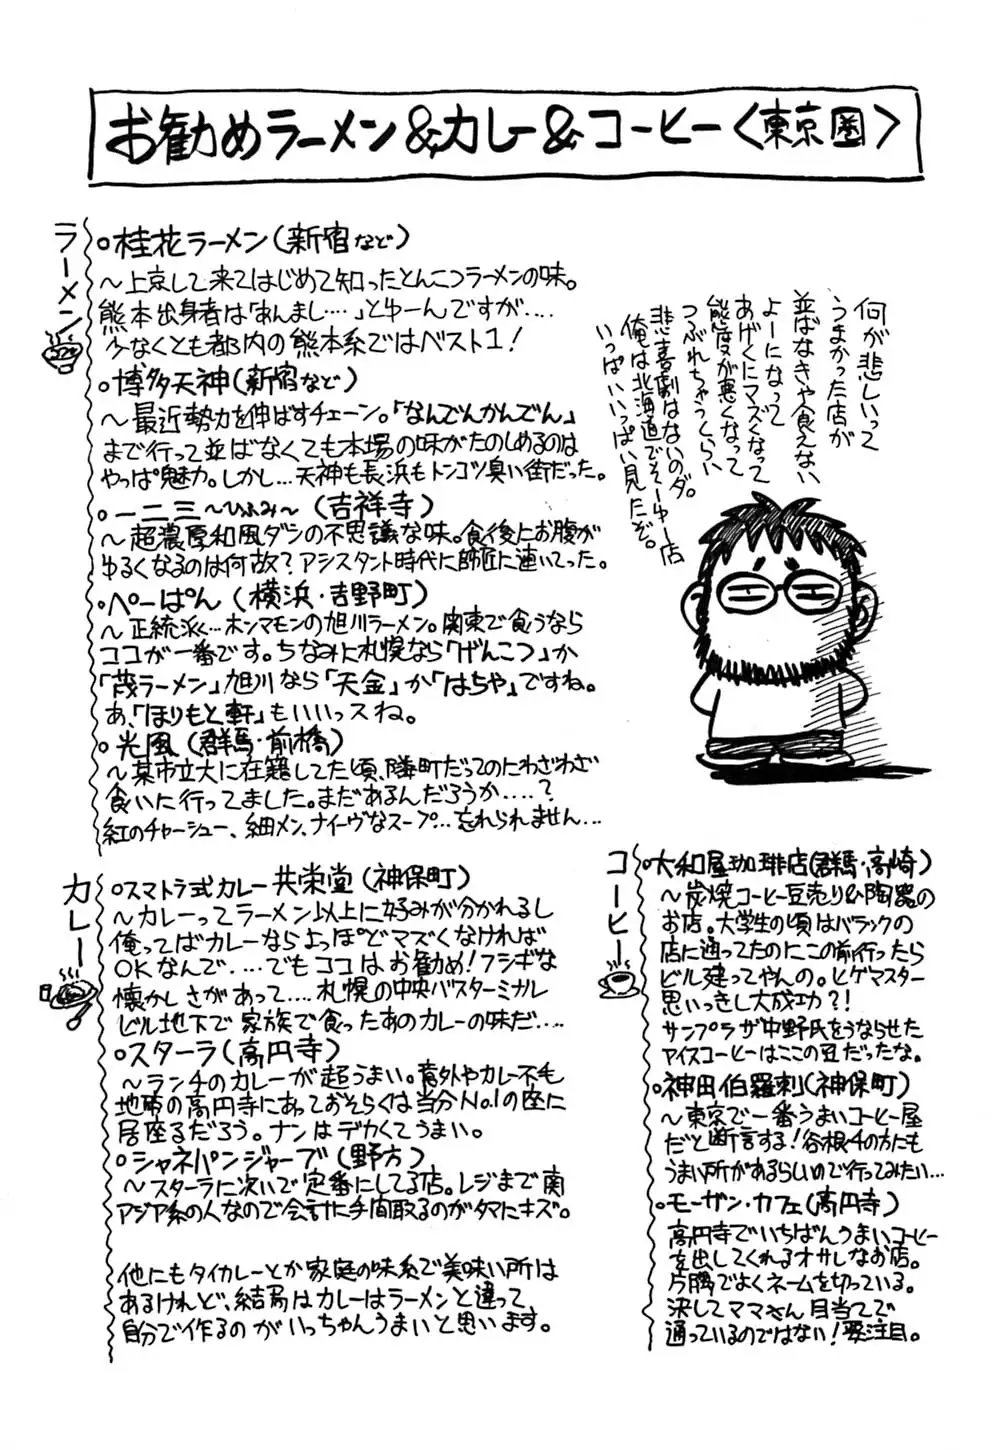 お勧めラーメン&カレー&コーヒー〈東京圏〉
ラーメン
○桂花ラーメン(新宿など)
～上京して来てはじめて知ったとんこつラーメンの味。
熊本出身者は「あんまし…..」とゆーんですが….
少なくとも都内の熊本系ではベスト1!
○博多天神(新宿など)
～最近勢力を伸ばすチェーン。「なんでんかんでん」
まで行って並ばなくても本場の味がたのしめるのは
やっぱ魅力。しかし…天神も長浜もトンコツ臭い街だった。
○一二三～ひふみ～(吉祥寺)
～超濃厚和風ダシの不思議な味。食後にお腹が
ゆるくなるのは何故?アシスタント時代に師匠に連いてった。
○ぺーぱん(横浜・吉野町)
～正統派く…ホンマモンの旭川ラーメン。関東で食うなら
ココが一番です。ちなみに札幌なら「げんこつ」か
「茂ラーメン」旭川なら「天金」か「はちや」ですね。
あ、「ほりもと軒」もいいっスね。
○光風(群馬・前橋)
～某市立大に在籍してた頃、隣町だってのにわざわざ
食いに行ってました。まだあるんだろうか….?
紅のチャーシュー、細メン、ナイーヴなスープ…忘れられません…
何が悲しいって
うまかった店が
並ばなきゃ食えない
よーになって
あげくにマズくなって
態度が悪くなって
つぶれちゃうくらい
悲喜劇はないのダ。
俺は北海道でそーゆー店
いっぱいいっぱい見たぞ。
カレー
○スマトラ式カレー共栄堂(神保町)
～カレーってラーメン以上に好みが分かれるし
俺ってばカレーならよっぽどマズくなければ
OKなんで….でもココはお勧め!フシギな
懐かしさがあって….札幌の中央バスターミナル
ビル地下で家族で食ったあのカレーの味だ….
○スターラ(高円寺)
～ランチのカレーが超うまい。意外やカレー不毛
地帯の高円寺にあっておそらくは当分No.1の座に
居座るだろう。ナンはデカくてうまい。
○シャネパンジャーブ(野方)
～スターラに次いで定番にしてる店。レジまで南
アジア系の人なので会計に手間取るのがタマにキズ。
他にもタイカレーとか家庭の味系で美味い所は
あるけれど、結局はカレーはラーメンと違って
自分で作るのがいっちゃんうまいと思います。
コーヒー
○大和屋珈琲店(群馬・高崎)
～炭焼コーヒー豆売り&陶器の
お店。大学生の頃はバラックの
店に通ってたのにこの前行ったら
ビル建ってやんの。ヒゲマスター
思いっきし大成功?!
サンプラザ中野氏をうならせた
アイスコーヒーはここの豆だったな。
○神田伯羅剌(神保町)
～東京で一番うまいコーヒー屋
だと断言する!谷根千の方にも
うまい所があるらしいので行ってみたい…
○モーザン・カフェ(高円寺)
高円寺でいちばんうまいコーヒー
を出してくれるオサレなお店。
片隅でよくネームを切っている。
決してママさん目当てで
通っているのではない!要注目。